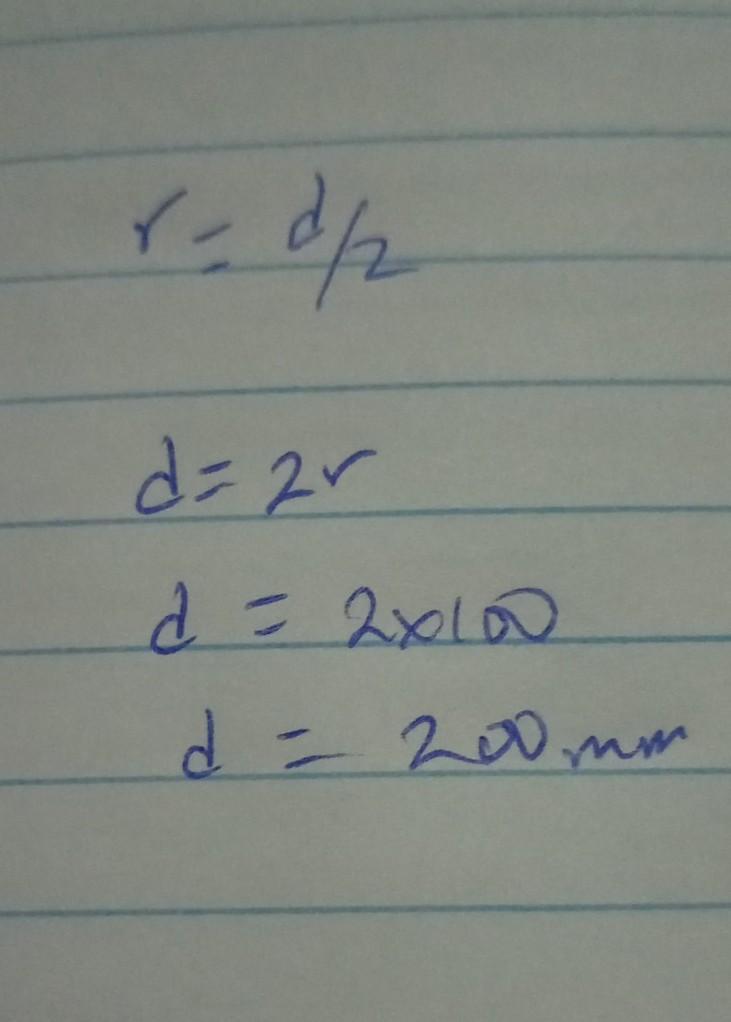 r = d/2
d = 2r
d = 2x100
d = 200mm